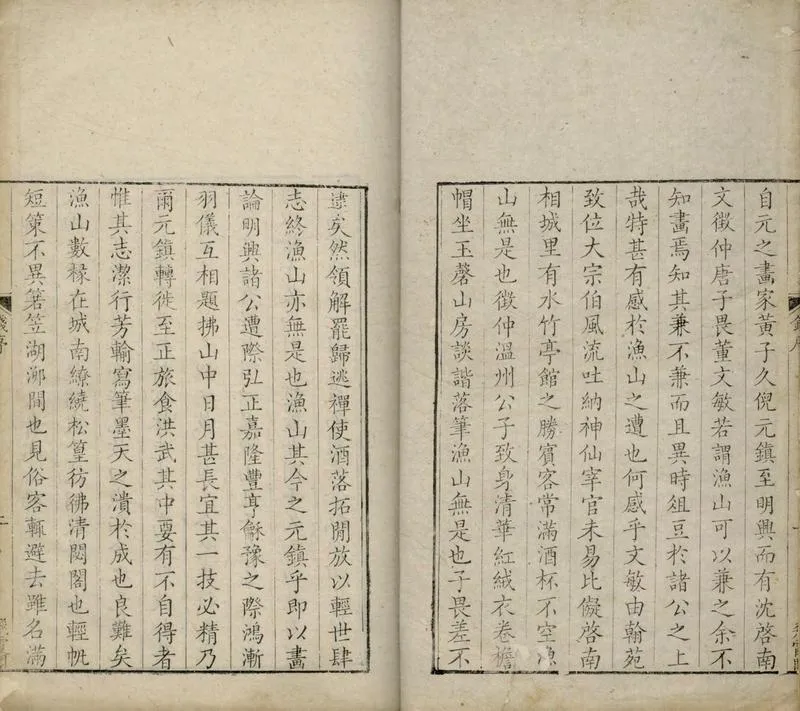 自元之畫家黃子久倪元鎮至明興而有沈啓南
文徵仲唐子畏董文敏若謂漁山可以兼之余不
知畫焉知其兼不兼而且異時俎豆於諸公之上
哉特甚有感於漁山之遭也何感乎文敏由翰苑
致位大宗伯風流吐納神仙宰官未易比儗啓南
相城里有水竹亭館之勝賓客常滿酒杯不空漁
山無是也徵仲溫州公子致身清華紅絨衣卷檐
帽坐玉磬山房談諧落筆漁山無是也子畏差不
逮矣然領解罷歸逃禪使酒落拓閒放以輕世肆
志終漁山亦無是也漁山其今之元鎮乎即以畫
論明興諸公遭際弘正嘉隆豐亨龢豫之際鴻漸
羽儀互相題拂山中日月甚長宜其一技必精乃
爾元鎮轉徙至正旅食洪武其中要有不自得者
惟其志潔行芳輸寫筆墨天之潰於成也良難矣
漁山數椽在城南繚繞松篁彷彿清閟閣也輕帆
短策不異箬笠湖泖間也見俗客輒避去雖名滿